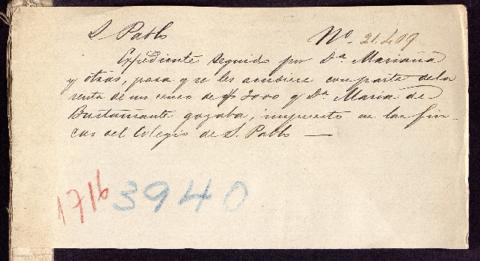 S. Pablo
No. 21.409
Expediente seguido por Da. Mariana
y otras, para q.e se les acudiera con parte de la
renta de un censo de $ 3000 q.e Da. Maria de
Bustamante gozaba, impuesto en las fin-
cas del Colegio de S. Pablo —
1716 3940